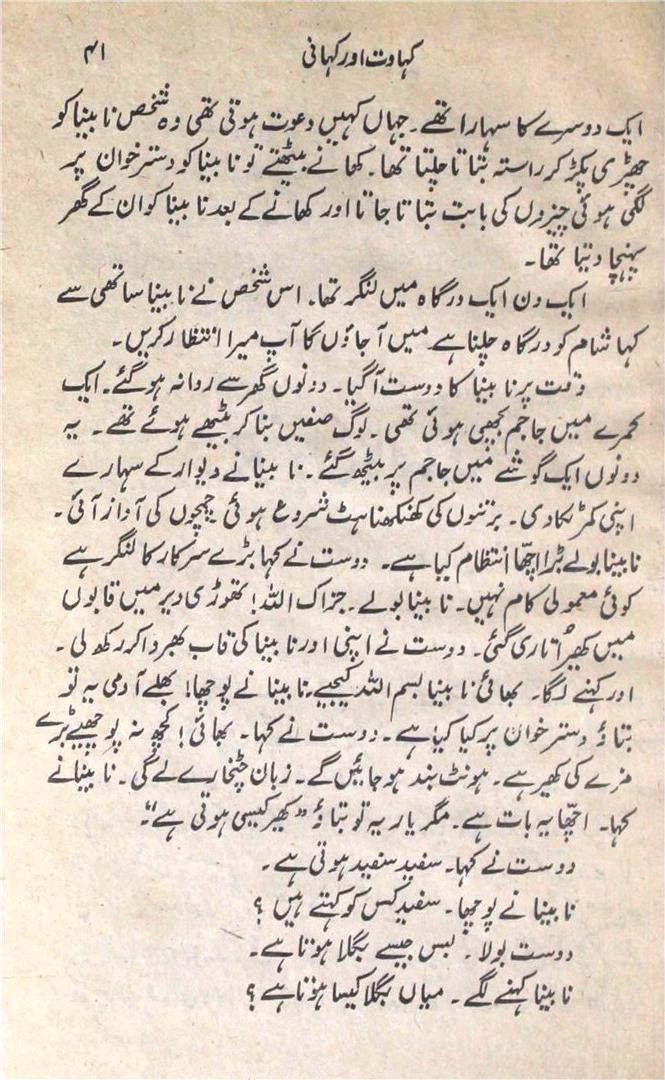 کہاوت اور کہانی
۴۱
ایک دوسرے کا سہارا تھے۔ جہاں کہیں دعوت ہوتی تھی وہ شخص نابینا کو
چھڑی پکڑ کر راستہ بتاتا چلتا تھا۔ کھانے بیٹھتے تو نابینا کو دسترخوان پر
لگی ہوئی چیزوں کی بابت بتاتا جاتا اور کھانے کے بعد نابینا کو ان کے گھر
پہنچا دیتا تھا۔
ایک دن ایک درگاہ میں لنگر تھا۔ اس شخص نے نابینا ساتھی سے
کہا شام کو درگاہ چلنا ہے میں آجاؤں گا آپ میرا انتظار کریں۔
وقت پر نابینا کا دوست آگیا۔ دونوں گھر سے روانہ ہوگئے۔ ایک
کمرے میں جاجم بچھی ہوئی تھی۔ لوگ صفیں بنا کر بیٹھے ہوئے تھے۔ یہ
دونوں ایک گوشے میں جاجم پر بیٹھ گئے۔ نابینا نے دیوار کے سہارے
اپنی کمر لگا دی۔ برتنوں کی کھنکھناہٹ شروع ہوئی چمچوں کی آواز آئی۔
نابینا بولے بڑا اچھّا انتظام کیا ہے۔ دوست نے کہا بڑے سرکار کا لنگر ہے
کوئی معمولی کام نہیں۔ نابینا بولے۔ جزاک اللہ! تھوڑی دیر میں قابوں
میں کھیر اُتاری گئی۔ دوست نے اپنی اور نابینا کی قاب بھروا کر رکھ لی۔
اور کہنے لگا۔ بھائی نابینا بسم اللہ کیجیے۔ نابینا نے پوچھا! بھلے آدمی یہ تو
بتاؤ دسترخوان پر کیا کیا ہے۔ دوست نے کہا۔ بھائی! کچھ نہ پوچھیے بڑے
مزے کی کھیر ہے۔ ہونٹ بند ہوجائیں گے۔ زبان چٹخارے لے گی۔ نابینا نے
کہا۔ اچھّا یہ بات ہے۔ مگر یار یہ تو بتاؤ ”کھیر کیسی ہوتی ہے“۔
دوست نے کہا۔ سفید سفید ہوتی ہے۔
نابینا نے پوچھا۔ سفید کس کو کہتے ہیں ؟
دوست بولا۔ بس جیسے بگلا ہوتا ہے۔
نابینا کہنے لگے۔ میاں بگلا کیسا ہوتا ہے ؟